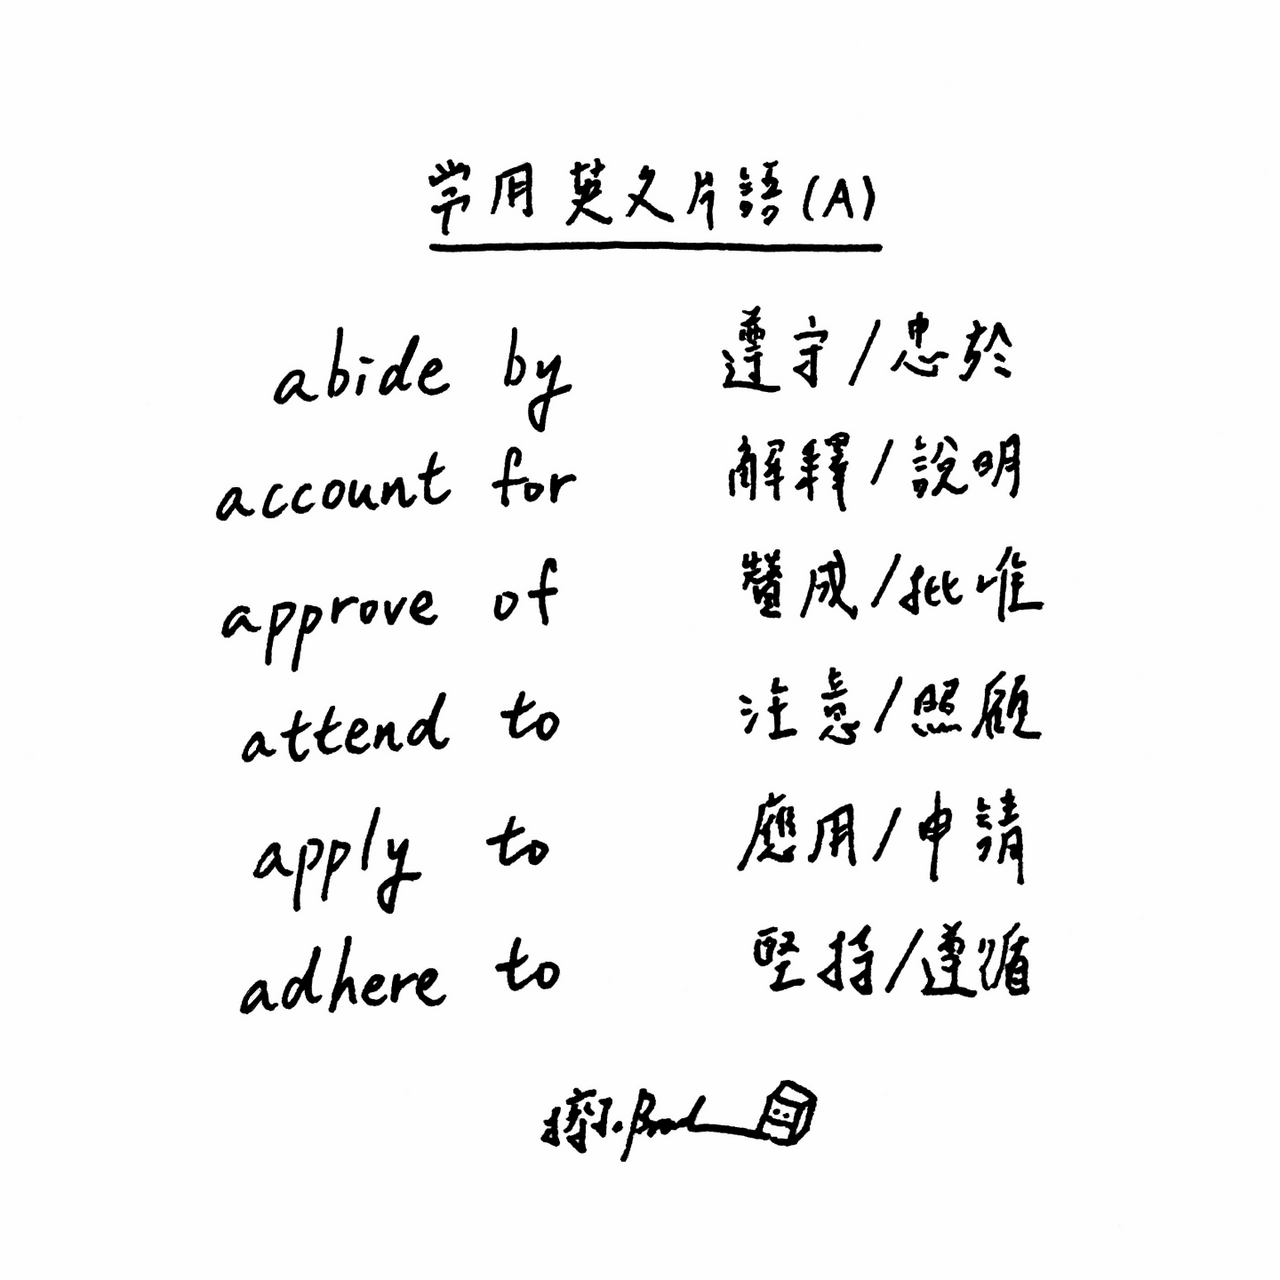 常用英文片語(A)
abide by 遵守/忠於
account for 解釋/說明
approve of 贊成/批准
attend to 注意/照顧
apply to 應用/申請
adhere to 堅持/遵循